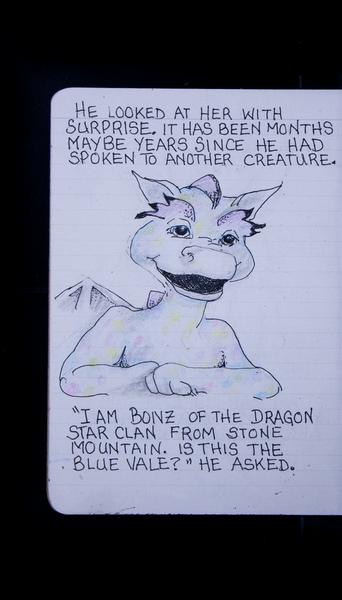 HE LOOKED AT HER WITH
SURPRISE. IT HAS BEEN MONTHS
MAYBE YEARS SINCE HE HAD
SPOKEN TO ANOTHER CREATURE.
"I AM BONZ OF THE DRAGON
STAR CLAN FROM STONE
MOUNTAIN. IS THIS THE
BLUE VALE?" HE ASKED.